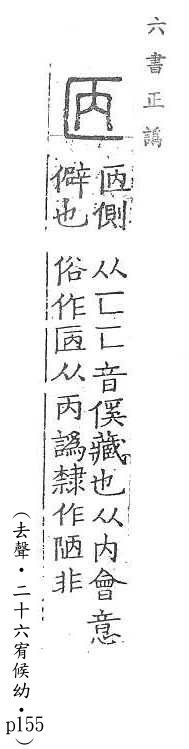 六書正譌
㔷
㔷側
僻也
从匸匸音傒藏也从内會意
俗作㔷从丙譌隸作陋非
（去聲‧二十六宥候幼‧p155）